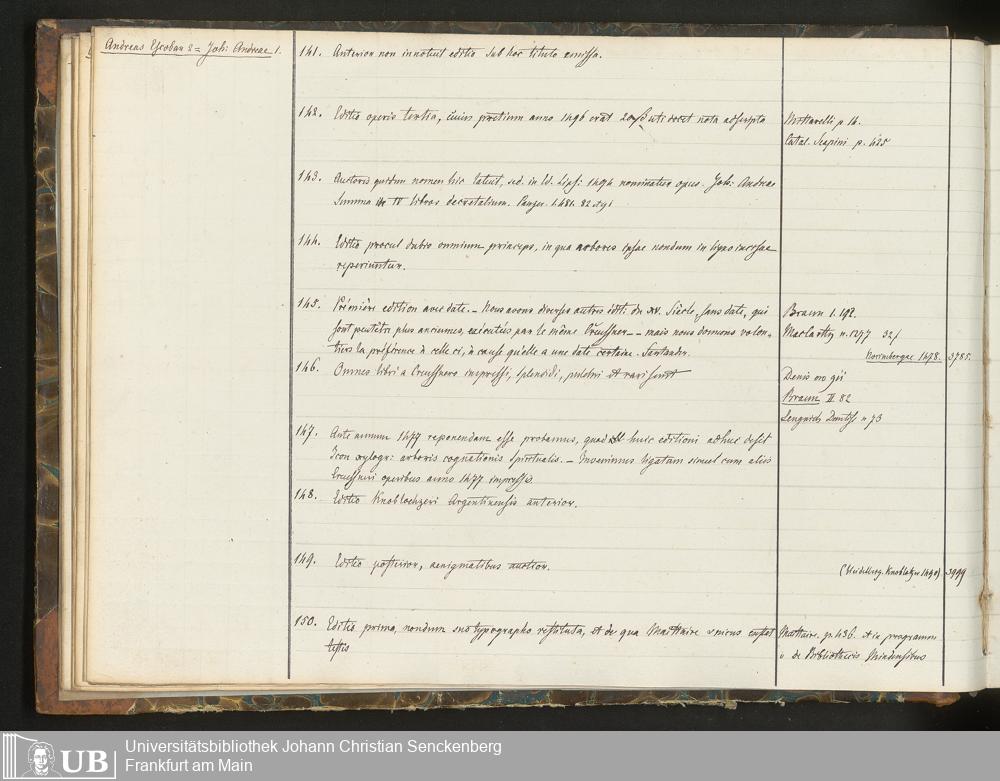 Andreas Escobar 2 = Joh: Andreae 1.
141. Anterior non innotuit editio sub hoc titulo emissa.
142. Editio operis tertia, cuius pretium anno 1496 erat uti docet nota adscripta
Mittarelli p 16.
Catal. Scapini p. 425
143. Auctoris quidem nomen hic latent, sed in Ed. Lips: 1494 nominatur opus. Joh: Andreae
Summa IV libros decretalium. Panzer. 1.481. 82 et 91
144. Editio procul dubio omnium princeps, in qua arbores ipsae nondum in ligno incisae
reperiuntur.
145. Première edition avec date. – Nous avons diverses autres édit: du XV. Siècle, sans date, qui
sont peutêtre plus anciennes, exécutées par le même Creussner – mais nous donnons volon-
tiers la préférence à celle ci, à cause qu'elle a une date certaine. Santander.
Braun 1. 192.
MacCarthy n. 1277 32 f
Norimbergae 1478. 3785.
146. Omnes libri a Creussnero impressi, splendidi, pulchri et rari sunt
Denis
Braun II. 82
Lengnich n 73
147. Ante annum 1477 reponendam esse probamus, quod huic editioni adhuc desit
Icon xylogr: arboris cognationis spiritualis. – Invenimus ligatam simul cum aliis
Creussneri operibus anno 1477 impressis.
148. Editio Knoblochzeri Argentinensis anterior.
149. Editio posterior, aenigmatibus auctior.
(Heidelberg. Knoblotzer 1490) 3999
150. Editio prima, nondum suo typographo restituta, et de qua Maittaire unicus extat
testis
Maittaire. p. 436. et in programm
v. de Bibliothecis Mindensibus
UB
Universitätsbibliothek Johann Christian Senckenberg
Frankfurt am Main